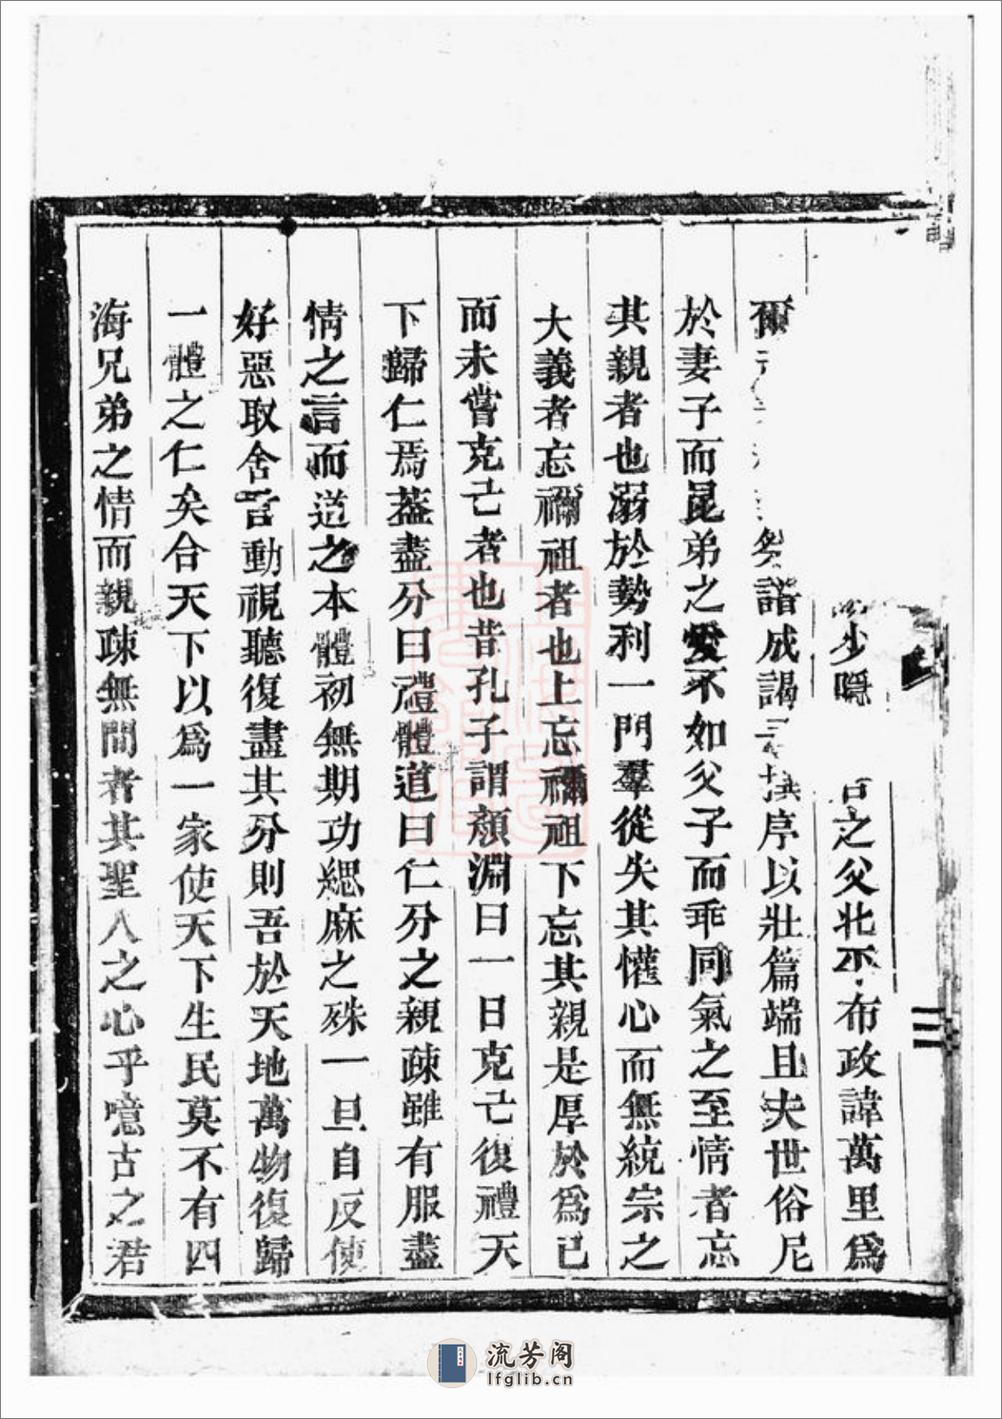 少隱之父北不布政諱萬里爲
爾諧成謁撰序以壯篇端且夫世俗尼
於妻子而昆弟之愛不如父子而乖同氣之至情者忘
其親者也溺於勢利一門羣從失其懽心而無統宗之
大義者忘禰祖者也上忘禰祖下忘其親是厚於爲已
而未嘗克已者也昔孔子謂顏淵曰一日克已復禮天
下歸仁焉葢盡分曰禮體道曰仁分之親疎雖有服盡
情之言而道之本體初無期功緦麻之殊一旦自反使
好惡取舍言動視聽復盡其分則吾於天地萬物復歸
一體之仁矣合天下以爲一家使天下生民莫不有四
海兄弟之情而親疎無間者其聖人之心乎噫古之君
流芳阁
lfglib.cn